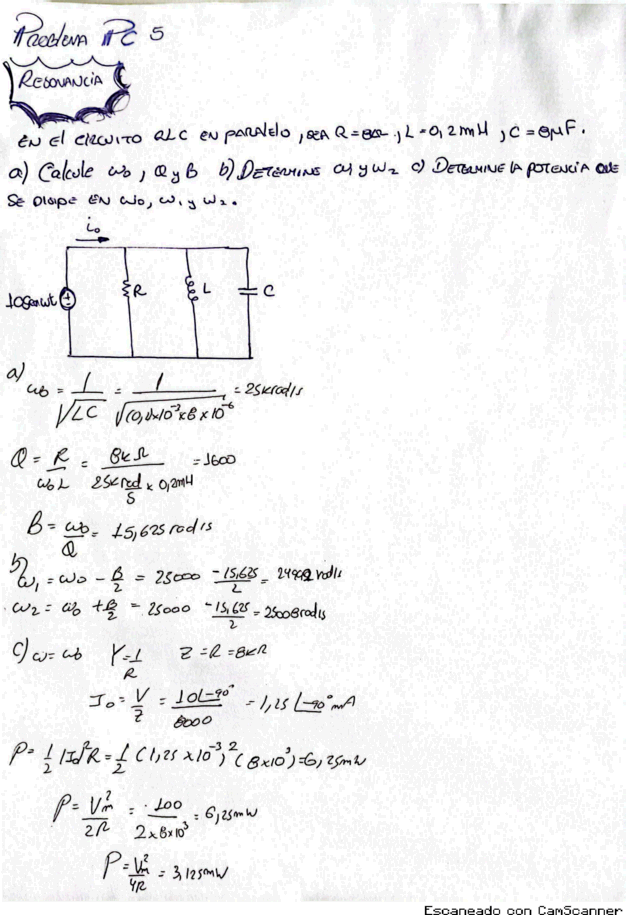 Problema PC 5
Resonancia
En el circuito RLC en paralelo, sea R=8kΩ, L=0,2mH, C=8μF.
a) Calcule ω₀, Q y B b) Determine ω₁ y ω₂ c) Determine la potencia que
se disipe en ω₀, ω₁ y ω₂.
i₀
10 sen ωt
R
L
C
a)
ω₀ = 1/√LC = 1/√(0,2x10⁻³x8x10⁻⁶ = 25krad/s
Q = R/ω₀L = 8kΩ/25k rad/s x 0,2mH = 1600
B = ω₀/Q = 15,625 rad/s
b)
ω₁ = ω₀ - B/2 = 25000 -15,625/2 = 24992 rad/s
ω₂ = ω₀ + B/2 = 25000 -15,625/2 = 25008 rad/s
c) ω = ω₀ Y = 1/R Z = R = 8kR
I₀ = V/Z = 10∠-90°/8000 = 1,25∠-90° mA
P = 1/2 |I₀|²R = 1/2 (1,25 x10⁻³)²(8x10³) = 6,25mW
P = Vm²/2R = 100/2x8x10³ = 6,25mW
P = Vm²/4R = 3,125mW
Escaneado con CamScanner